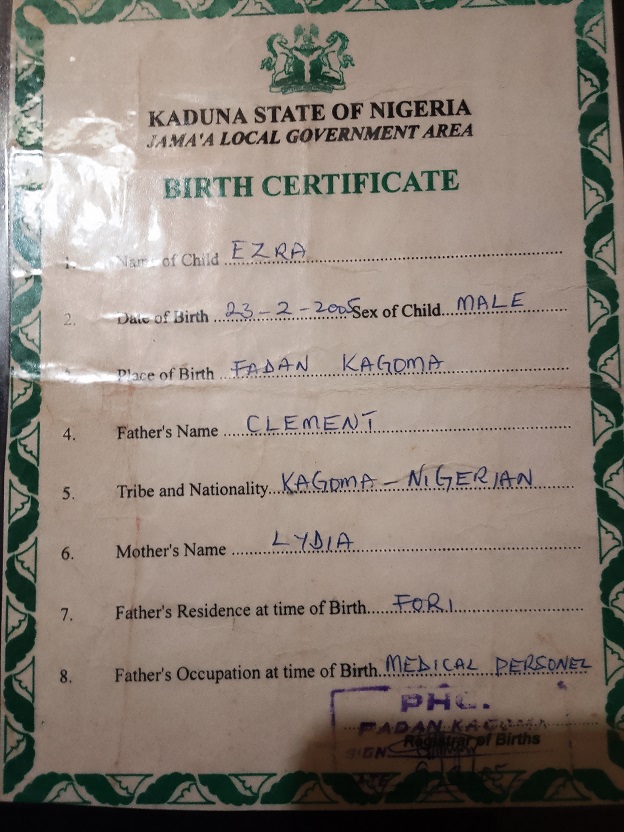 KADUNA STATE OF NIGERIA
JAMA'A LOCAL GOVERNMENT AREA
BIRTH CERTIFICATE
1. Name of Child EZRA
2. Date of Birth 23-2-2005 Sex of Child MALE
3. Place of Birth FADAN KAGOMA
4. Father's Name CLEMENT
5. Tribe and Nationality KAGOMA - NIGERIAN
6. Mother's Name LYDIA
7. Father's Residence at time of Birth FORI
8. Father's Occupation at time of Birth MEDICAL PERSONEL
PHC.
FADAN KAGOMA
SIGN Registrar of Births